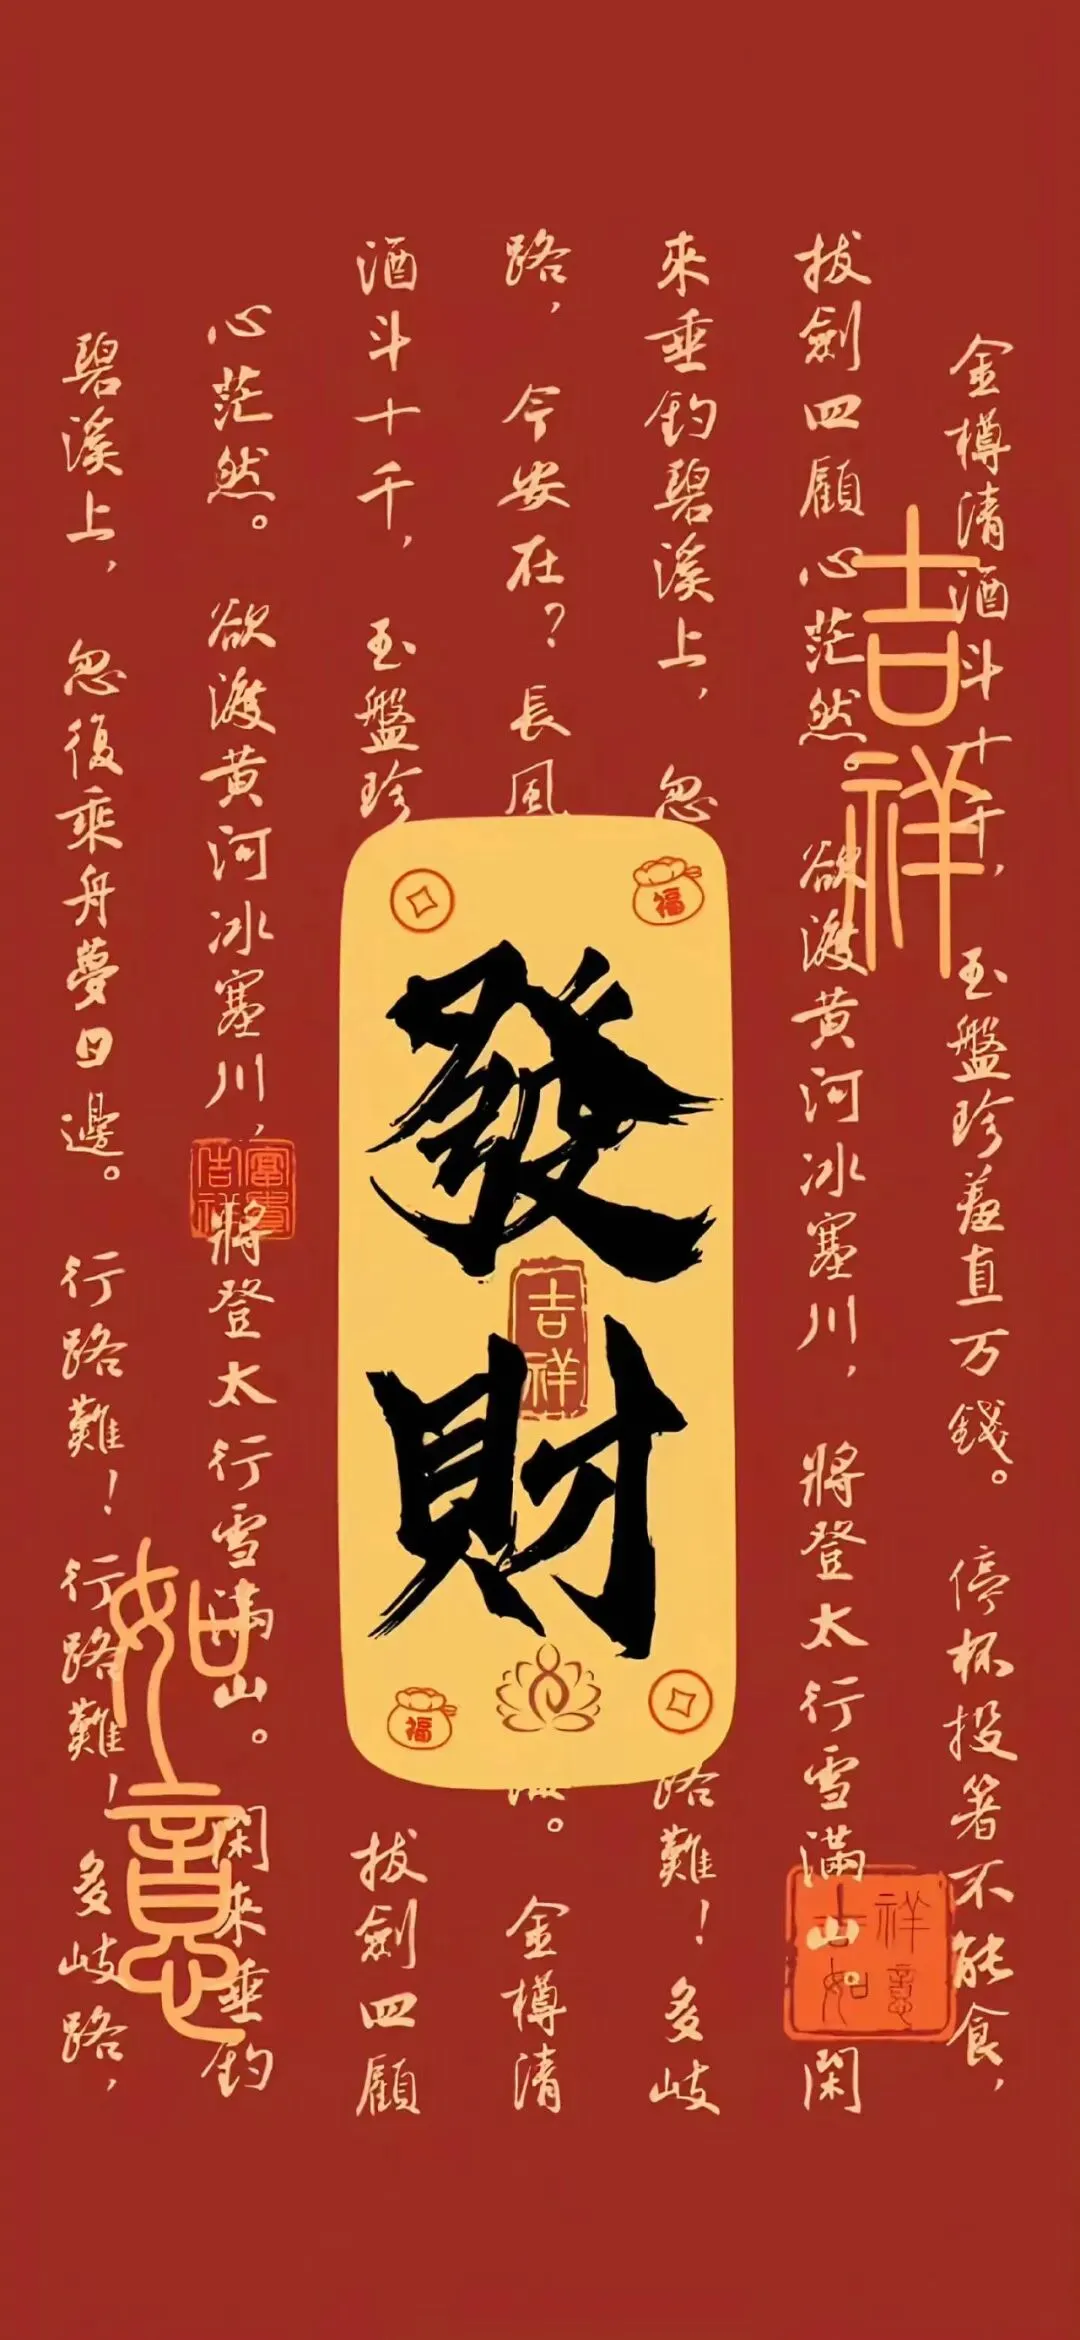 金樽清酒斗十千，玉盤珍羞直万錢。停杯投箸不能食，
拔劍四顧心茫然。欲渡黄河冰塞川，將登太行雪滿山。閑
來垂釣碧溪上，忽
路難！多岐
路，今安在？長風
金樽清
酒斗十千，玉盤珍
拔劍四顧
心茫然。欲渡黄河冰塞川，將登太行雪滿山。閑來垂釣
碧溪上，忽復乘舟夢日邊。行路難！行路難！多岐路，
吉祥
如意
福
發財
吉祥
福
富貴
吉祥
祥意
吉如